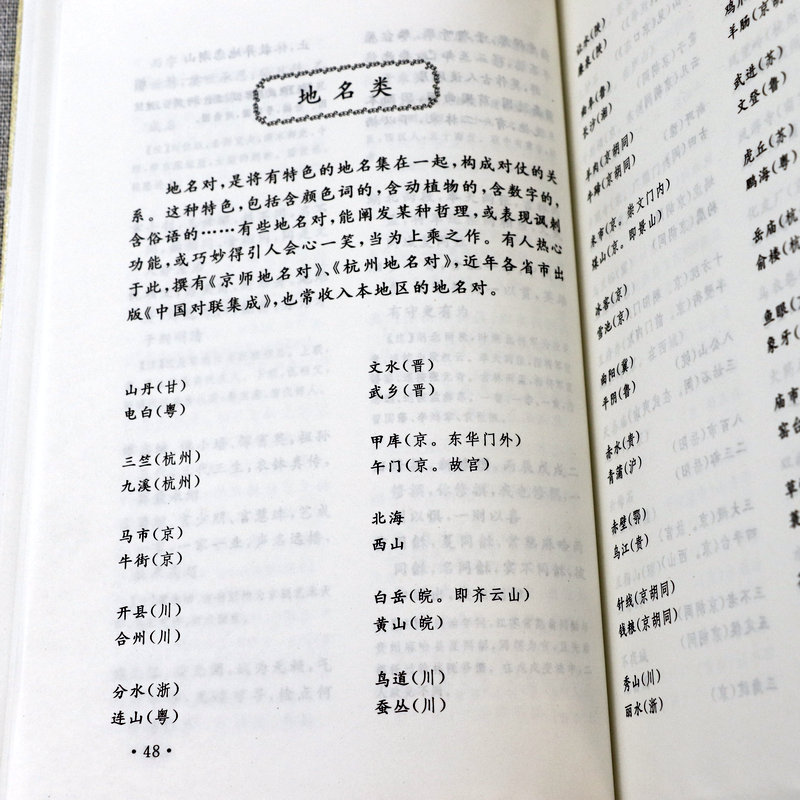 地名类
地名对，是将有特色的地名集在一起，构成对仗的关
系。这种特色，包括含颜色词的，含动植物的，含数字的，
含俗语的……有些地名对，能阐发某种哲理，或表现讽刺
功能，或巧妙得引人会心一笑，当为上乘之作。有人热心
于此，撰有《京师地名对》、《杭州地名对》，近年各省市出
版《中国对联集成》，也常收入本地区的地名对。
山丹(甘)
电白(粤)
三竺(杭州)
九溪(杭州)
马市(京)
牛街(京)
开县(川)
合州(川)
分水(浙)
连山(粤)
文水(晋)
武乡(晋)
甲库(京。东华门外)
午门(京。故宫)
北海
西山
白岳(皖。即齐云山)
黄山(皖)
鸟道(川)
蚕丛(川)
·48·
长沙(湘)
羊肉(京胡同)
牛蹄(京胡同)
朱市(京。崇文门内)
珠山(京。即景山)
冰窖(京)
雪池(京)
幽阳(冀)
平阴(鲁)
赤水(贵)
青浦(沪)
赤壁(鄂)
乌江(贵)
针线(京胡同)
钱粮(京胡同)
秀山(川)
丽水(浙)
羊肠(京胡同
武进(苏)
文登(鲁)
虎丘(苏)
鹏海(粤)
岳庙(杭
俞楼(杭
鱼眼(
象牙(
庙市
窑台